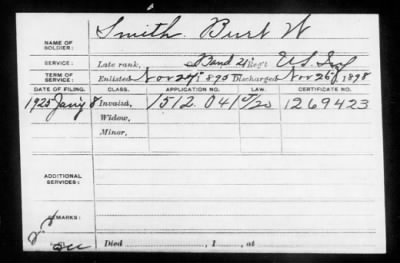 NAME OF SOLDIER: Smith. Burt W
SERVICE: Late rank, Band 21 Reg't U.S. Inf
TERM OF SERVICE: Enlisted Nov 27, 1895 Discharged Nov 26, 1898
DATE OF FILING. CLASS. APPLICATION NO. LAW. CERTIFICATE NO.
1925 Jan'y 8 Invalid, 1512041 1269423
Widow,
Minor,
ADDITIONAL SERVICES:
REMARKS:
Died , 1 , at